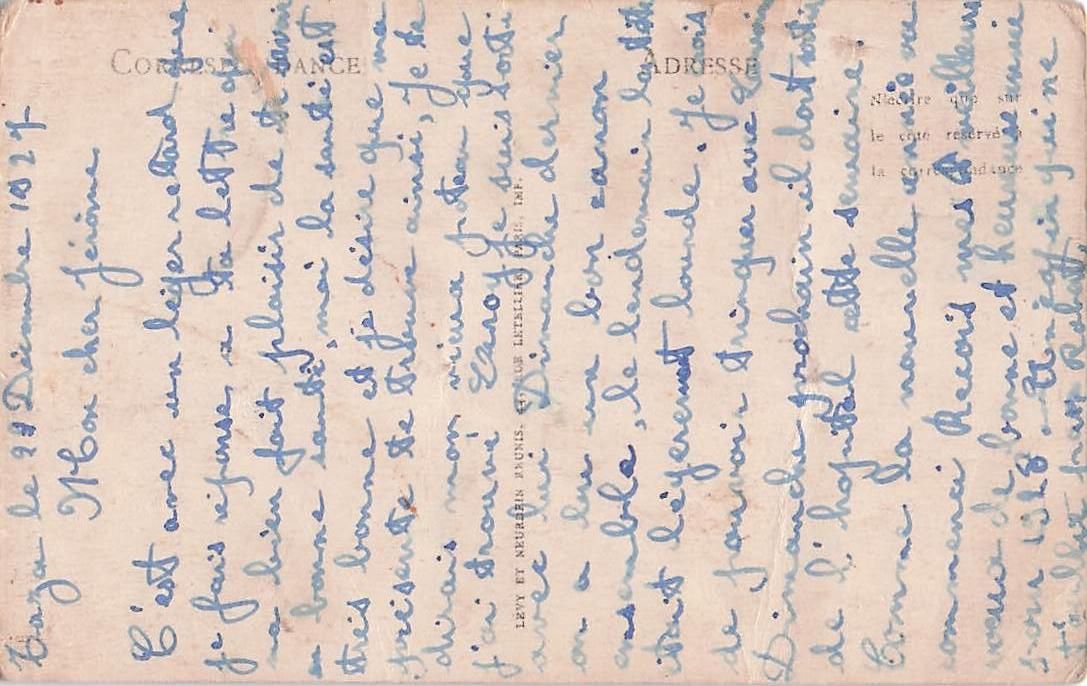 CORRESPONDANCE
ADRESSE
N'écrire que sur
le côté réservé à
la correspondance
LEVY ET NEURDEIN REUNIS, 44, RUE LETELLIER, PARIS, IMP.
Taza le 28 Décembre 1927
Mon cher Jérôme
C'est avec un léger retard que
je fais réponse a ta lettre qui
ma bien fait plaisir de te savoir
en bonne santé, moi la santé est
très bonne et je désire que ma
présente te trouve ainsi, Je te
dirais mon vieux poteau que
j'ai trouvé Lanoy je suis sorti
avec lui Dimanche dernier
on a bu un bon canon
ensemble, le lendemain la tête
était légèrement lourde. Je suis
de pouvoir trinquer avec
Dimanche prochain il doit sortir
de l'hopital cette semaine.
Comme la nouvelle année va
commencé Recois mes Meilleurs
voeux de bonne et heureuse année
pour 1928 un copain qui ne
t'oublie